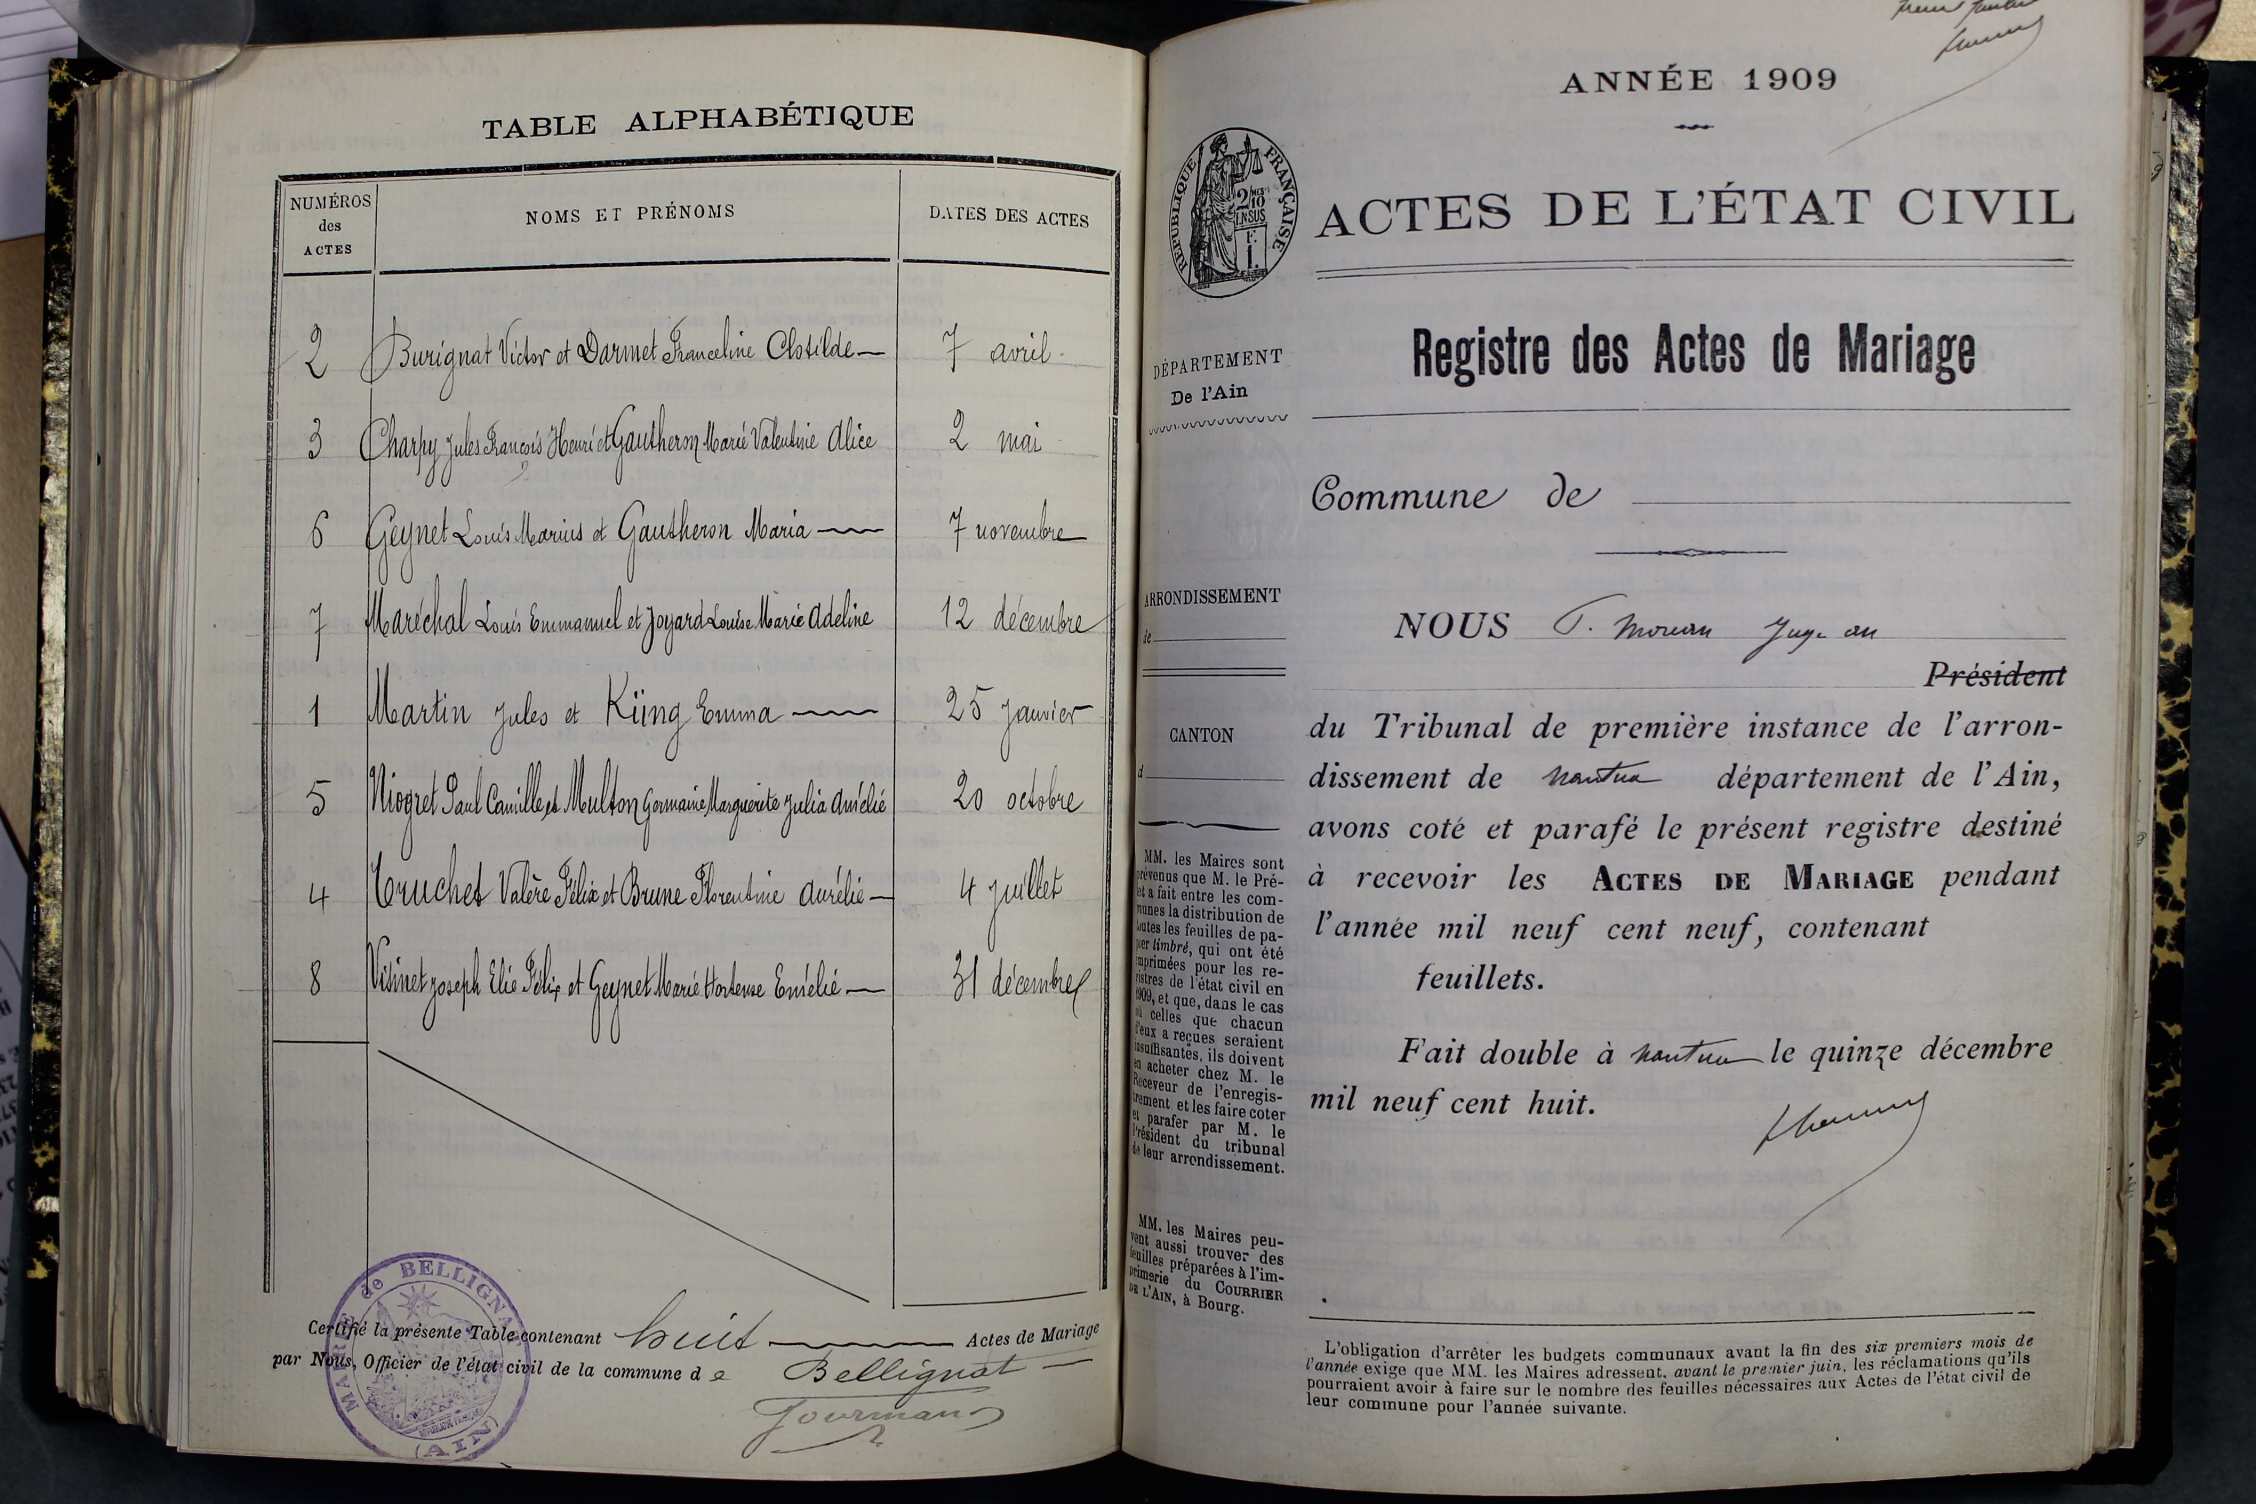 TABLE ALPHABÉTIQUE
NUMÉROS
des
ACTES
NOMS ET PRÉNOMS
DATES DES ACTES
2 Burignat Victor et Darmet Franceline Clotilde 7 avril
3 Charpy Jules François Henri et Gautheron Marie Valentine Alice 2 mai
6 Geynet Louis Marius et Gautheron Maria 7 novembre
7 Maréchal Louis Emmanuel et Joyard Louise Marie Adeline 12 décembre
1 Martin Jules et Küng Emma 25 janvier
5 Niogret Paul Camille et Multon Germaine Marguerite Julia Amélie 20 octobre
4 Truchet Valère Félix et Brune Florentine Aurélie 4 juillet
8 Visinet Joseph Elie Félix et Geynet Marie Hortense Emélie 31 décembre
Certifié la présente Table contenant huit Actes de Mariage
par Nous, Officier de l'état civil de la commune de Bellignat
MAIRIE de BELLIGNAT
(AIN)
ANNÉE 1909
RÉPUBLIQUE FRANÇAISE
2/10
EN SUS
F.
1.
ACTES DE L'ÉTAT CIVIL
Registre des Actes de Mariage
DÉPARTEMENT
De l'Ain
Commune de
ARRONDISSEMENT
de
CANTON
d
NOUS Juge au
Président
du Tribunal de première instance de l'arron-
dissement de Nantua département de l'Ain,
avons coté et parafé le présent registre destiné
à recevoir les ACTES DE MARIAGE pendant
l'année mil neuf cent neuf, contenant
feuillets.
Fait double à Nantua le quinze décembre
mil neuf cent huit.
MM. les Maires sont
prévenus que M. le Pré-
et a fait entre les com-
munes la distribution de
toutes les feuilles de pa-
pier timbré, qui ont été
imprimées pour les re-
gistres de l'état civil en
1909, et que, dans le cas
où celles que chacun
d'eux a reçues seraient
insuffisantes, ils doivent
en acheter chez M. le
Receveur de l'enregis-
trement et les faire coter
et parafer par M. le
Président du tribunal
de leur arrondissement.
MM. les Maires peu-
vent aussi trouver des
feuilles préparées à l'im-
primerie du COURRIER
DE L'AIN, à Bourg.
L'obligation d'arrêter les budgets communaux avant la fin des six premiers mois de
l'année exige que MM. les Maires adressent, avant le premier juin, les réclamations qu'ils
pourraient avoir à faire sur le nombre des feuilles nécessaires aux Actes de l'état civil de
leur commune pour l'année suivante.